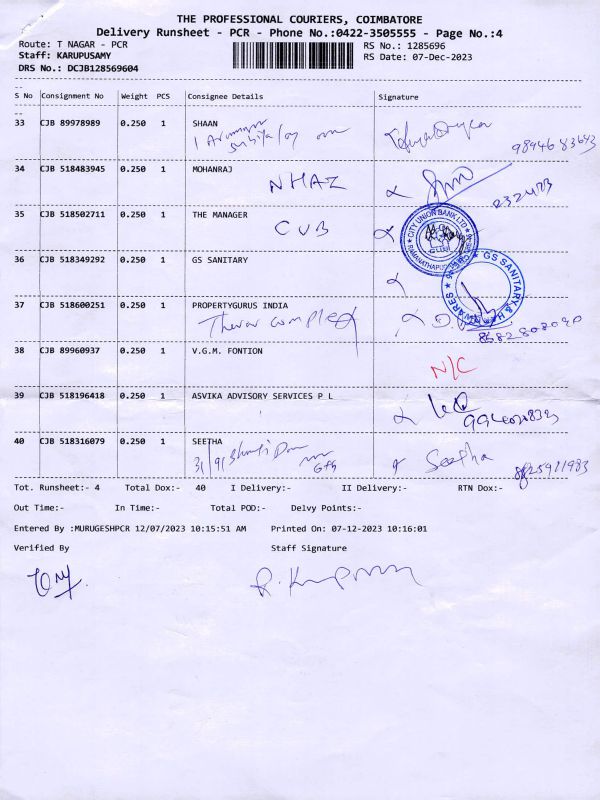 THE PROFESSIONAL COURIERS, COIMBATORE
Delivery Runsheet - PCR - Phone No.:0422-3505555 - Page No.:4
Route: T NAGAR - PCR
RS No.: 1285696
Staff: KARUPUSAMY
RS Date: 07-Dec-2023
DRS No.: DCJB128569604
S No Consignment No Weight PCS Consignee Details Signature
33 CJB 89978989 0.250 1 SHAAN
34 CJB 518483945 0.250 1 MOHANRAJ
NHAI
35 CJB 518502711 0.250 1 THE MANAGER
CUB
CITY UNION BANK LTD
36 CJB 518349292 0.250 1 GS SANITARY
GS SANITARY &
37 CJB 518600251 0.250 1 PROPERTYGURUS INDIA
38 CJB 89960937 0.250 1 V.G.M. FONTION
N/C
39 CJB 518196418 0.250 1 ASVIKA ADVISORY SERVICES P L
40 CJB 518316079 0.250 1 SEETHA
Seetha
Tot. Runsheet:- 4 Total Dox:- 40 I Delivery:- II Delivery:- RTN Dox:-
Out Time:- In Time:- Total POD:- Delvy Points:-
Entered By :MURUGESHPCR 12/07/2023 10:15:51 AM Printed On: 07-12-2023 10:16:01
Verified By Staff Signature